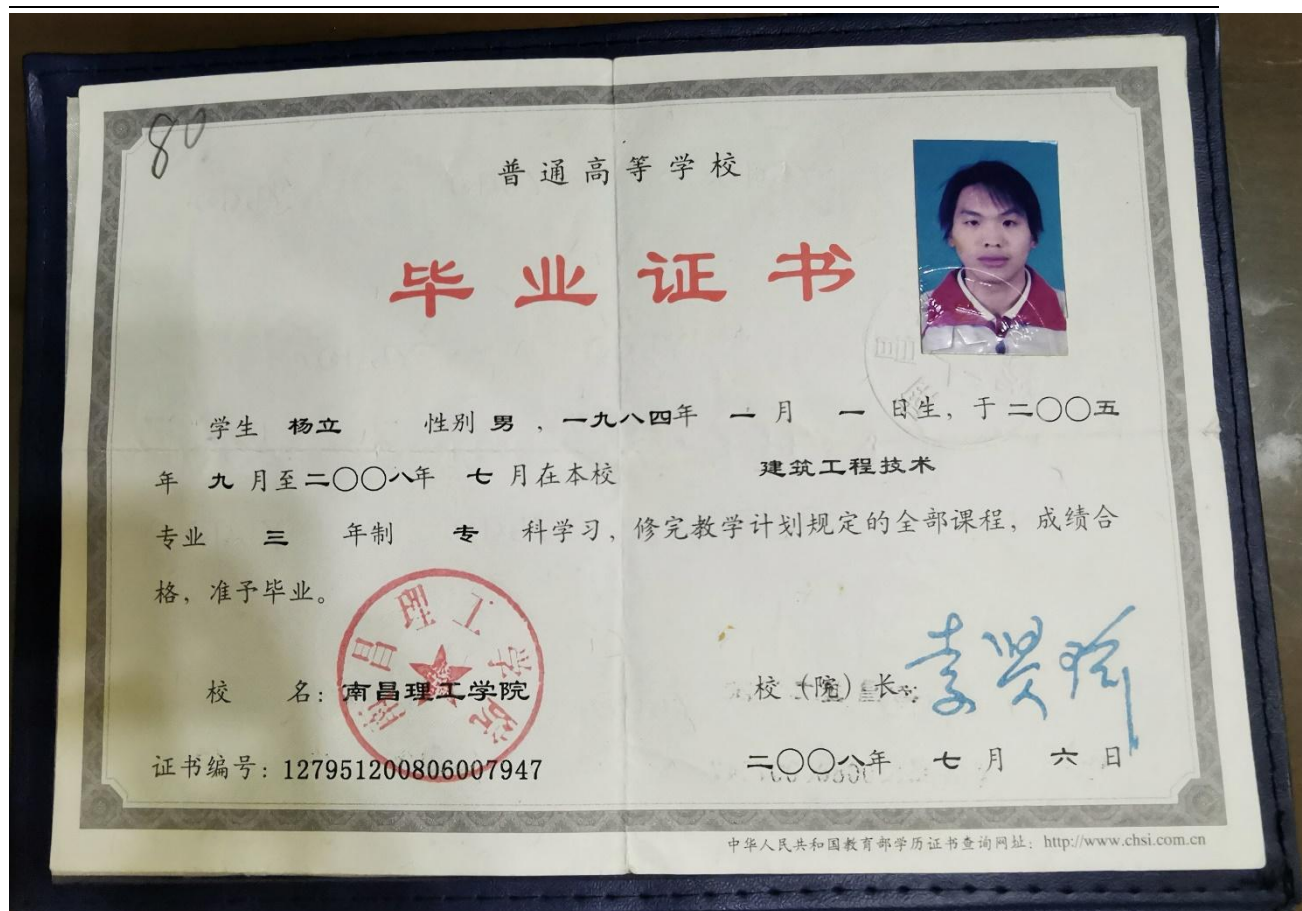 80
普通高等学校
毕业证书
学生 杨立 性别 男 ，一九八四年 一 月 一 日生，于 二〇〇五
年 九 月至 二〇〇八年 七 月在本校 建筑工程技术
专业 三 年制 专 科学习，修完教学计划规定的全部课程，成绩合
格，准予毕业。
南昌理工学院
校 名：南昌理工学院 校（院）长：
证书编号：127951200806007947 二〇〇八年 七 月 六 日
中华人民共和国教育部学历证书查询网址：http://www.chsi.com.cn